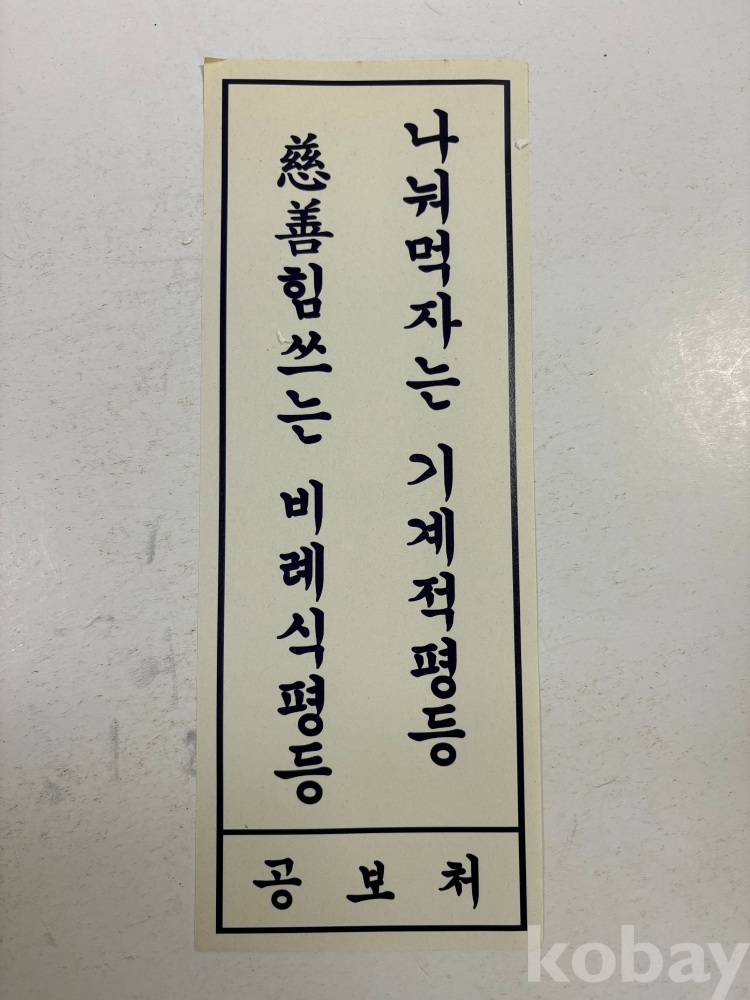 나눠먹자는 기계적평등
慈善힘쓰는 비례식평등
공보처
kobay